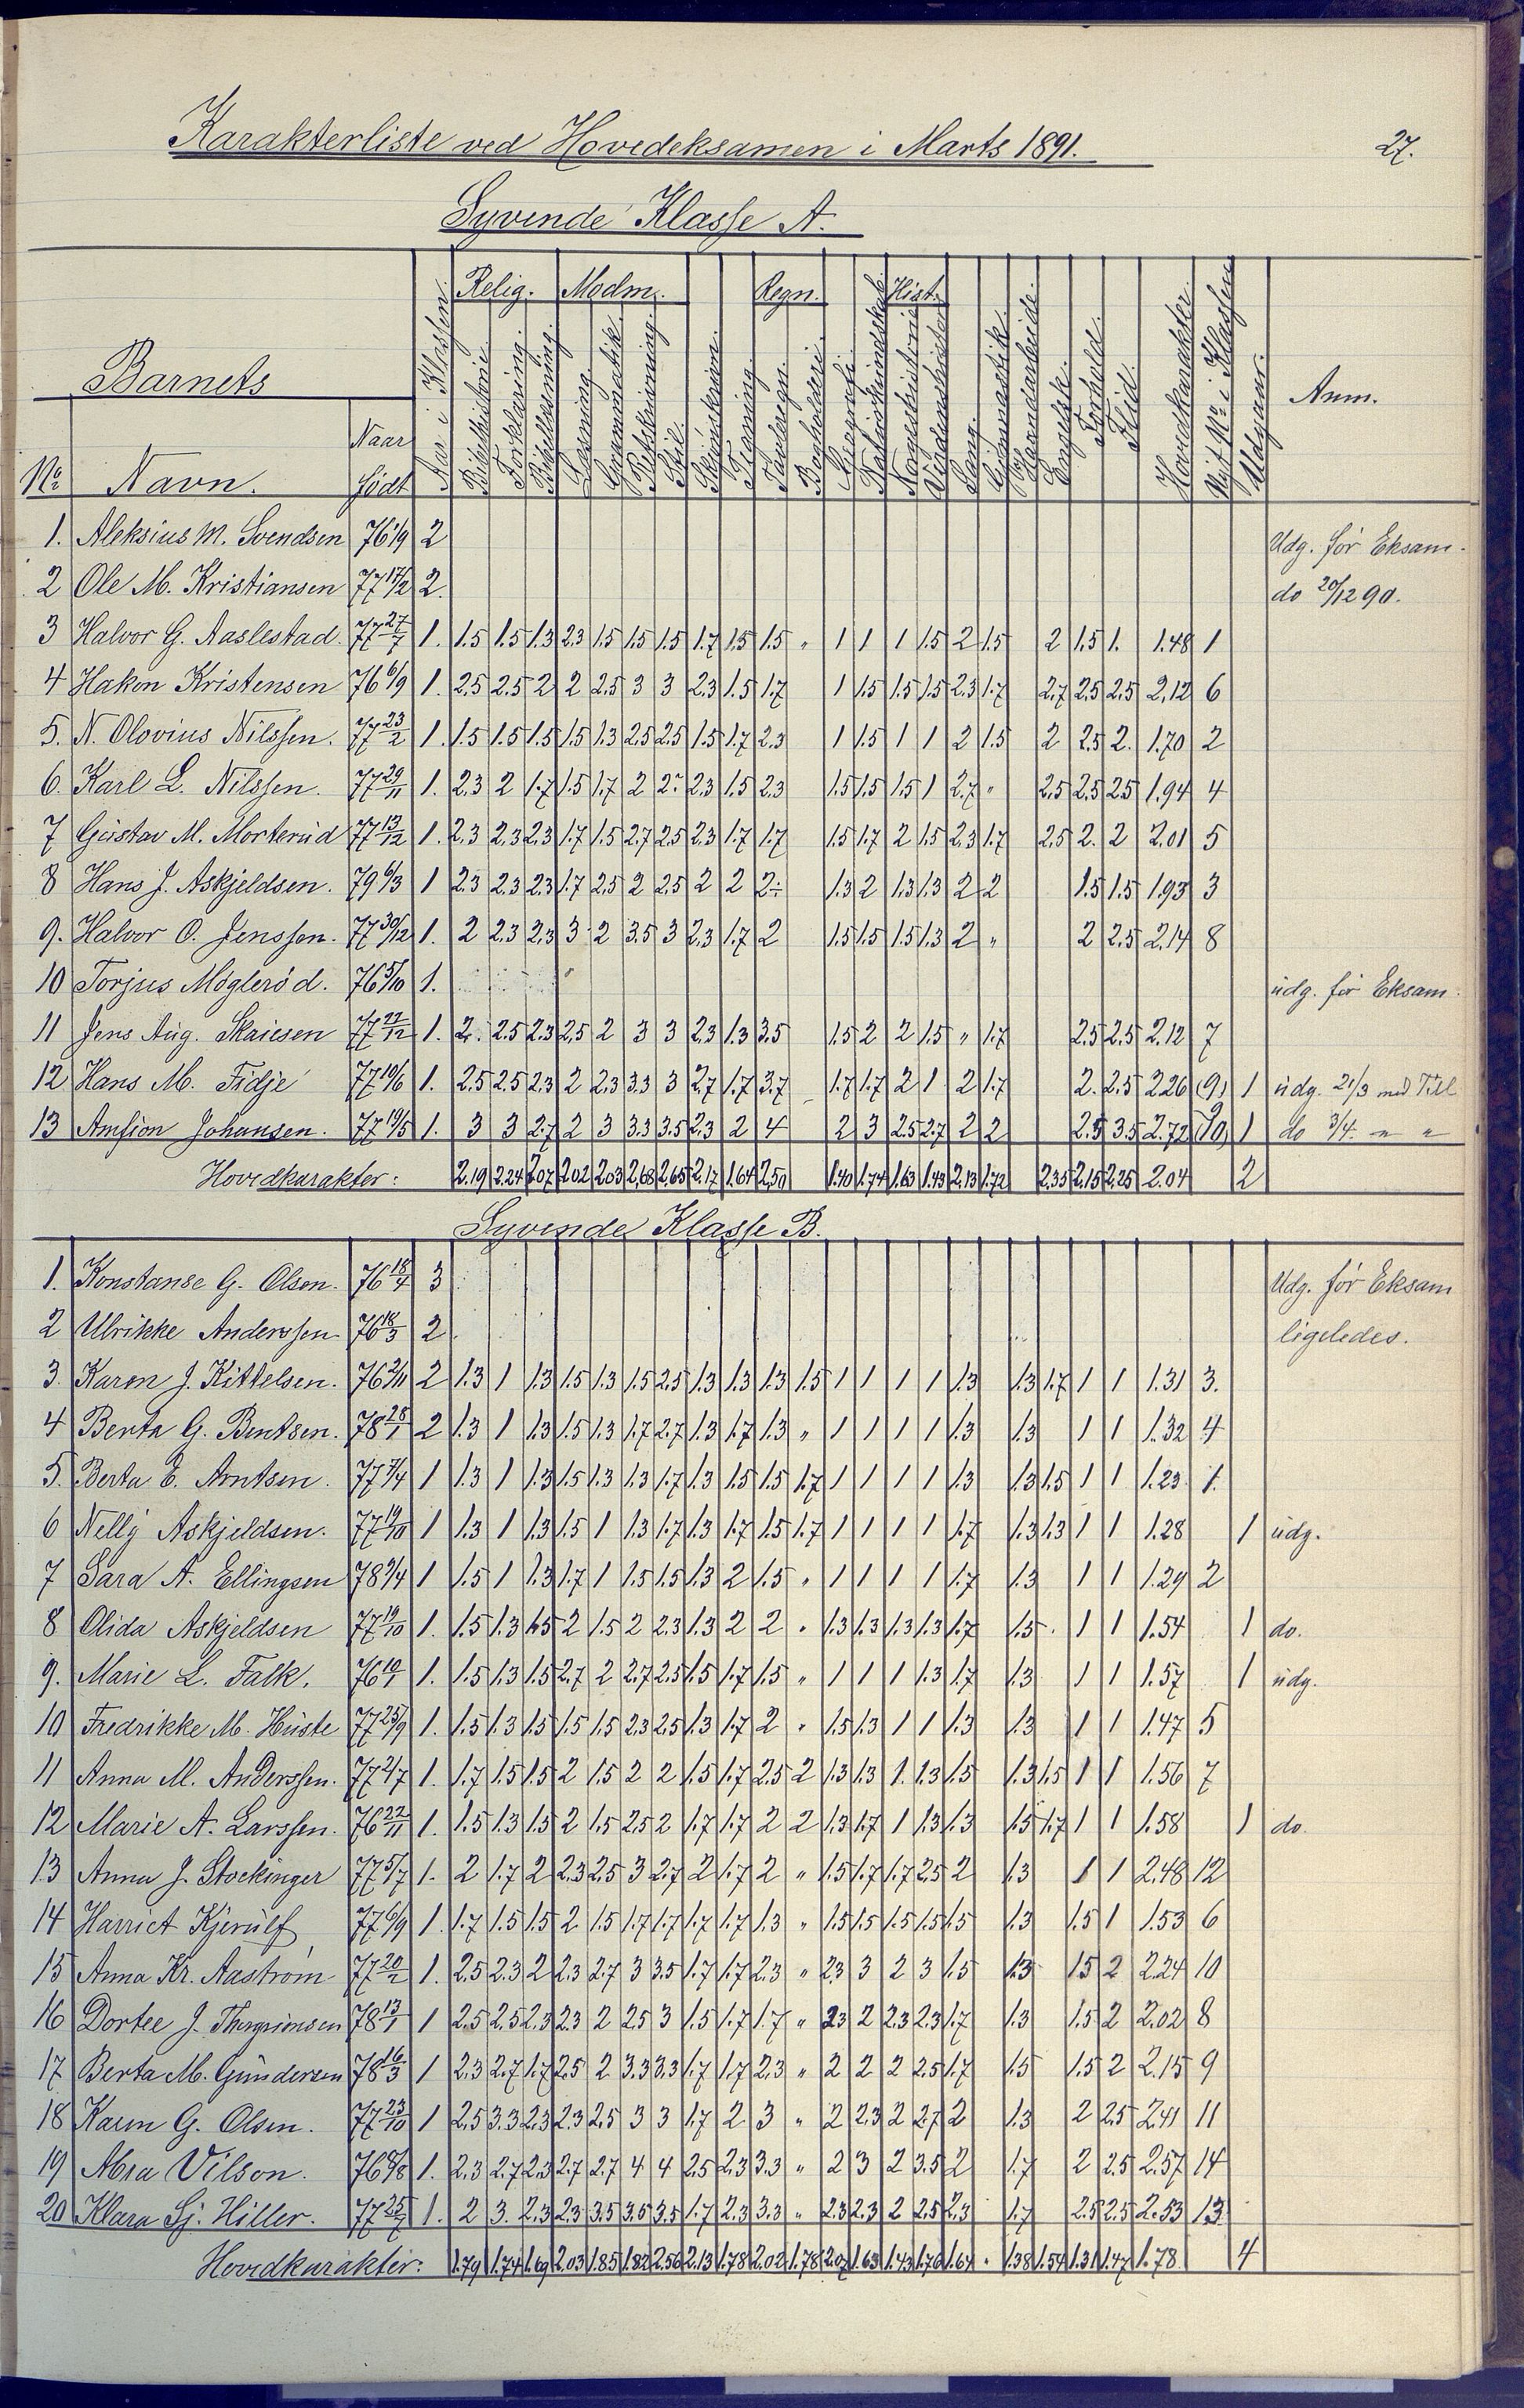 Karakterliste ved Hovedeksamen i Marts 1891.
27.
Syvende Klasse A.
Relig. Modm. Regn. Hist.
Barnets
No Navn. Naar født Aar i Klassen. Bibelhistorie. Forklaring. Bibellæsning. Læsning. Grammatik. Retskrivning. Stil. Skjønskrivn. Tegning. Tavleregn. Bogholderi. Geografi. Naturkundskab. Norgeshistorie Verdenshistorie Sang. Gymnastik. Haandarbeide. Engelsk. Forhold. Flid. Hovedkarakter. Nyt No i Klassen Udgaar. Anm.
1. Aleksius M. Svendsen 76 1/9 2 Udg. før Eksam.
2 Ole M. Kristiansen 77 17/2 2. do 20/12 90.
3 Halvor G. Aaslestad. 77 27/7 1. 1.5 1.5 1.3 2.3 1.5 1.5 1.5 1.7 1.5 1.5 " 1 1 1 1.5 2 1.5 2 1.5 1. 1.48 1
4 Hakon Kristensen 76 6/9 1. 2.5 2.5 2 2 2.5 3 3 2.3 1.5 1.7 1 1.5 1.5 1.5 2.3 1.7 2.7 2.5 2.5 2.12 6
5. N. Olovius Nilssen. 77 23/2 1. 1.5 1.5 1.5 1.5 1.3 2.5 2.5 1.5 1.7 2.3 1 1.5 1 1 2 1.5 2 2.5 2. 1.70 2
6. Karl L. Nilssen. 77 29/11 1. 2.3 2 1.7 1.5 1.7 2 2 2.3 1.5 2.3 1.5 1.5 1.5 1 2.7 " 2.5 2.5 2.5 1.94 4
7 Gustav M. Morterud 77 13/12 1. 2.3 2.3 2.3 1.7 1.5 2.7 2.5 2.3 1.7 1.7 1.5 1.7 2 1.5 2.3 1.7 2.5 2. 2 2.01 5
8 Hans J. Askjeldsen. 79 6/3 1 2.3 2.3 2.3 1.7 2.5 2 2.5 2 2 2 1.3 2 1.3 1.3 2 2 1.5 1.5 1.93 3
9. Halvor O. Jenssen. 77 30/12 1. 2 2.3 2.3 3 2 3.5 3 2.3 1.7 2 1.5 1.5 1.5 1.3 2 " 2 2.5 2.14 8
10 Torjus Møglerød. 76 5/10 1. udg. før Eksam.
11 Jens Aug. 77 22/12 1. 2. 2.5 2.3 2.5 2 3 3 2.3 1.3 3.5 1.5 2 2 1.5 " 1.7 2.5 2.5 2.12 7
12 Hans M. Fidje 77 10/6 1. 2.5 2.5 2.3 2 2.3 3.3 3 2.7 1.7 3.7 1.7 1.7 2 1 2 1.7 2. 2.5 2.26 (9) 1 udg. 21/3 med Till
13 Amsion Johansen. 77 19/5 1. 3 3 2.7 2 3 3.3 3.5 2.3 2 4 2 3 2.5 2.7 2 2 2.5 3.5 2.72 (10) 1 do 3/4 " "
Hovedkarakter: 2.19 2.24 2.07 2.02 2.03 2.68 2.65 2.17 1.64 2.50 1.40 1.74 1.63 1.43 2.13 1.72 2.35 2.15 2.25 2.04 2
Syvende Klasse B.
1. Konstanse G. Olsen. 76 18/4 3 Udg. før Eksam
2 Ulrikke Anderssen 76 18/3 2 ligeledes.
3. Karen J. Kittelsen. 76 2/11 2 1.3 1 1.3 1.5 1.3 1.5 2.5 1.3 1.3 1.3 1.5 1 1 1 1 1.3 1.3 1.7 1 1 1.31 3.
4 Berta G. Bentsen. 78 28/1 2 1.3 1 1.3 1.5 1.3 1.7 2.7 1.3 1.7 1.3 " 1 1 1 1 1.3 1.3 1 1 1.32 4
5. Berta E. Arntsen. 77 7/4 1 1.3 1 1.3 1.5 1.3 1.3 1.7 1.3 1.5 1.5 1.7 1 1 1 1 1.3 1.3 1.5 1 1 1.23 1.
6 Nelly Askjeldsen. 77 19/10 1 1.3 1 1.3 1.5 1 1.3 1.7 1.3 1.7 1.5 1.7 1 1 1 1 1.7 1.3 1.3 1 1 1.28 1 udg.
7 Sara A. Ellingsen 78 9/4 1 1.5 1 1.3 1.7 1 1.5 1.5 1.3 2 1.5 " 1 1 1 1 1.7 1.3 1 1 1.29 2
8 Olida Askjeldsen 77 19/10 1. 1.5 1.3 1.5 2 1.5 2 2.3 1.3 2 2 " 1.3 1.3 1.3 1.3 1.7 1.5 1 1 1.54 1 do.
9. Marie L. Falk. 76 19/1 1. 1.5 1.3 1.5 2.7 2 2.7 2.5 1.5 1.7 1.5 " 1 1 1 1.3 1.7 1.3 1 1 1.57 1 udg.
10 Fredrikke M. Huste 77 25/9 1. 1.5 1.3 1.5 1.5 1.5 2.3 2.5 1.3 1.7 2 " 1.5 1.3 1 1 1.3 1.3 1 1 1.47 5
11 Anna M. Anderssen. 77 2/7 1. 1.7 1.5 1.5 2 1.5 2 2 1.5 1.7 2.5 2 1.3 1.3 1. 1.3 1.5 1.3 1.5 1 1 1.56 7
12 Marie A. Larssen. 76 22/11 1. 1.5 1.3 1.5 2 1.5 2.5 2 1.7 1.7 2 2 1.3 1.7 1 1.3 1.3 1.5 1.7 1 1 1.58 1 do.
13 Anna J. Stockinger 77 5/7 1. 2 1.7 2 2.3 2.5 3 2.7 2 1.7 2 " 1.5 1.7 1.7 2.5 2 1.3 1 1 2.48 12
14 Harriet Kjerulf 77 6/9 1. 1.7 1.5 1.5 2 1.5 1.7 1.7 1.7 1.7 1.3 " 1.5 1.5 1.5 1.5 1.5 1.3 1.5 1 1.53 6
15 Anna Kr. Aastrøm 77 20/2 1. 2.5 2.3 2 2.3 2.7 3 3.5 1.7 1.7 2.3 " 2.3 3 2 3 1.5 1.3 1.5 2 2.24 10
16 Dortee J. Thorgrimsen 78 13/1 1 2.5 2.5 2.3 2.3 2 2.5 3 1.5 1.7 1.7 " 2.3 2 2.3 2.3 1.7 1.3 1.5 2 2.02 8
17 Berta M. Gundersen 78 16/3 1 2.3 2.7 1.7 2.5 2 3.3 3.3 1.7 1.7 2.3 " 2 2 2 2.5 1.7 1.5 1.5 2 2.15 9
18 Karen G. Olsen. 77 23/10 1 2.5 3.3 2.3 2.3 2.5 3 3 1.7 2 3 " 2 2.3 2 2.7 2 1.3 2 2.5 2.41 11
19 Abra Vilson. 76 8/8 1. 2.3 2.7 2.3 2.7 2.7 4 4 2.5 2.3 3.3 " 2 3 2 3.5 2 1.7 2 2.5 2.57 14
20 Klara Sj. Hiller. 77 25/7 1. 2 3. 2.3 2.3 3.5 3.5 3.5 1.7 2.3 3.3 " 2.3 2.3 2 2.5 2.3 1.7 2.5 2.5 2.53 13.
Hovedkarakter: 1.79 1.74 1.69 2.03 1.85 1.82 2.56 2.13 1.78 2.02 1.78 2.07 1.63 1.43 1.76 1.64 " 1.38 1.54 1.31 1.47 1.78 4